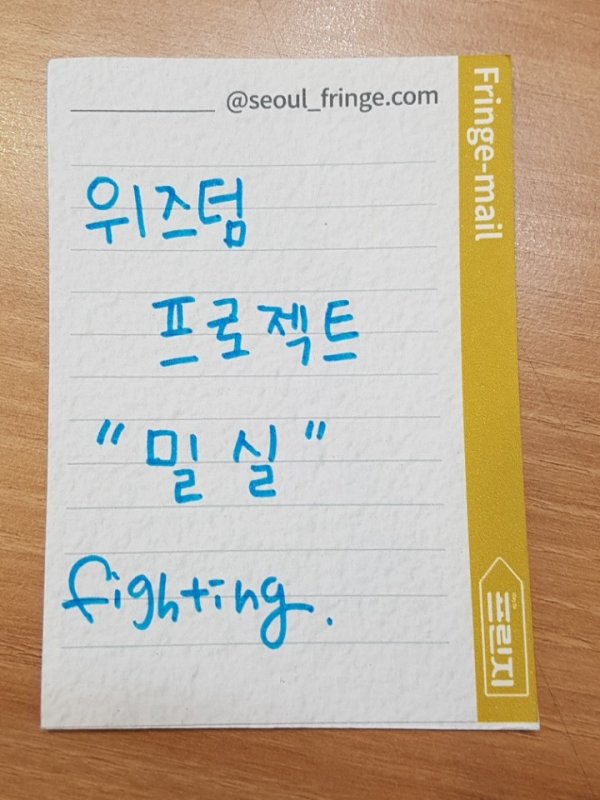 @seoul_fringe.com
Fringe-mail
위즈텀
프로젝트
"밀실"
fighting.
프린지